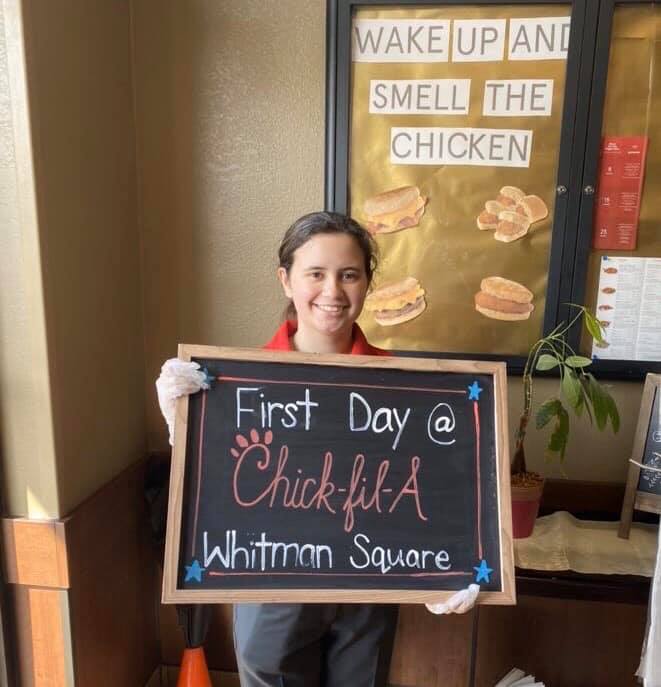 WAKE UP AND
SMELL THE
CHICKEN
First Day @
Chick-fil-A
Whitman Square